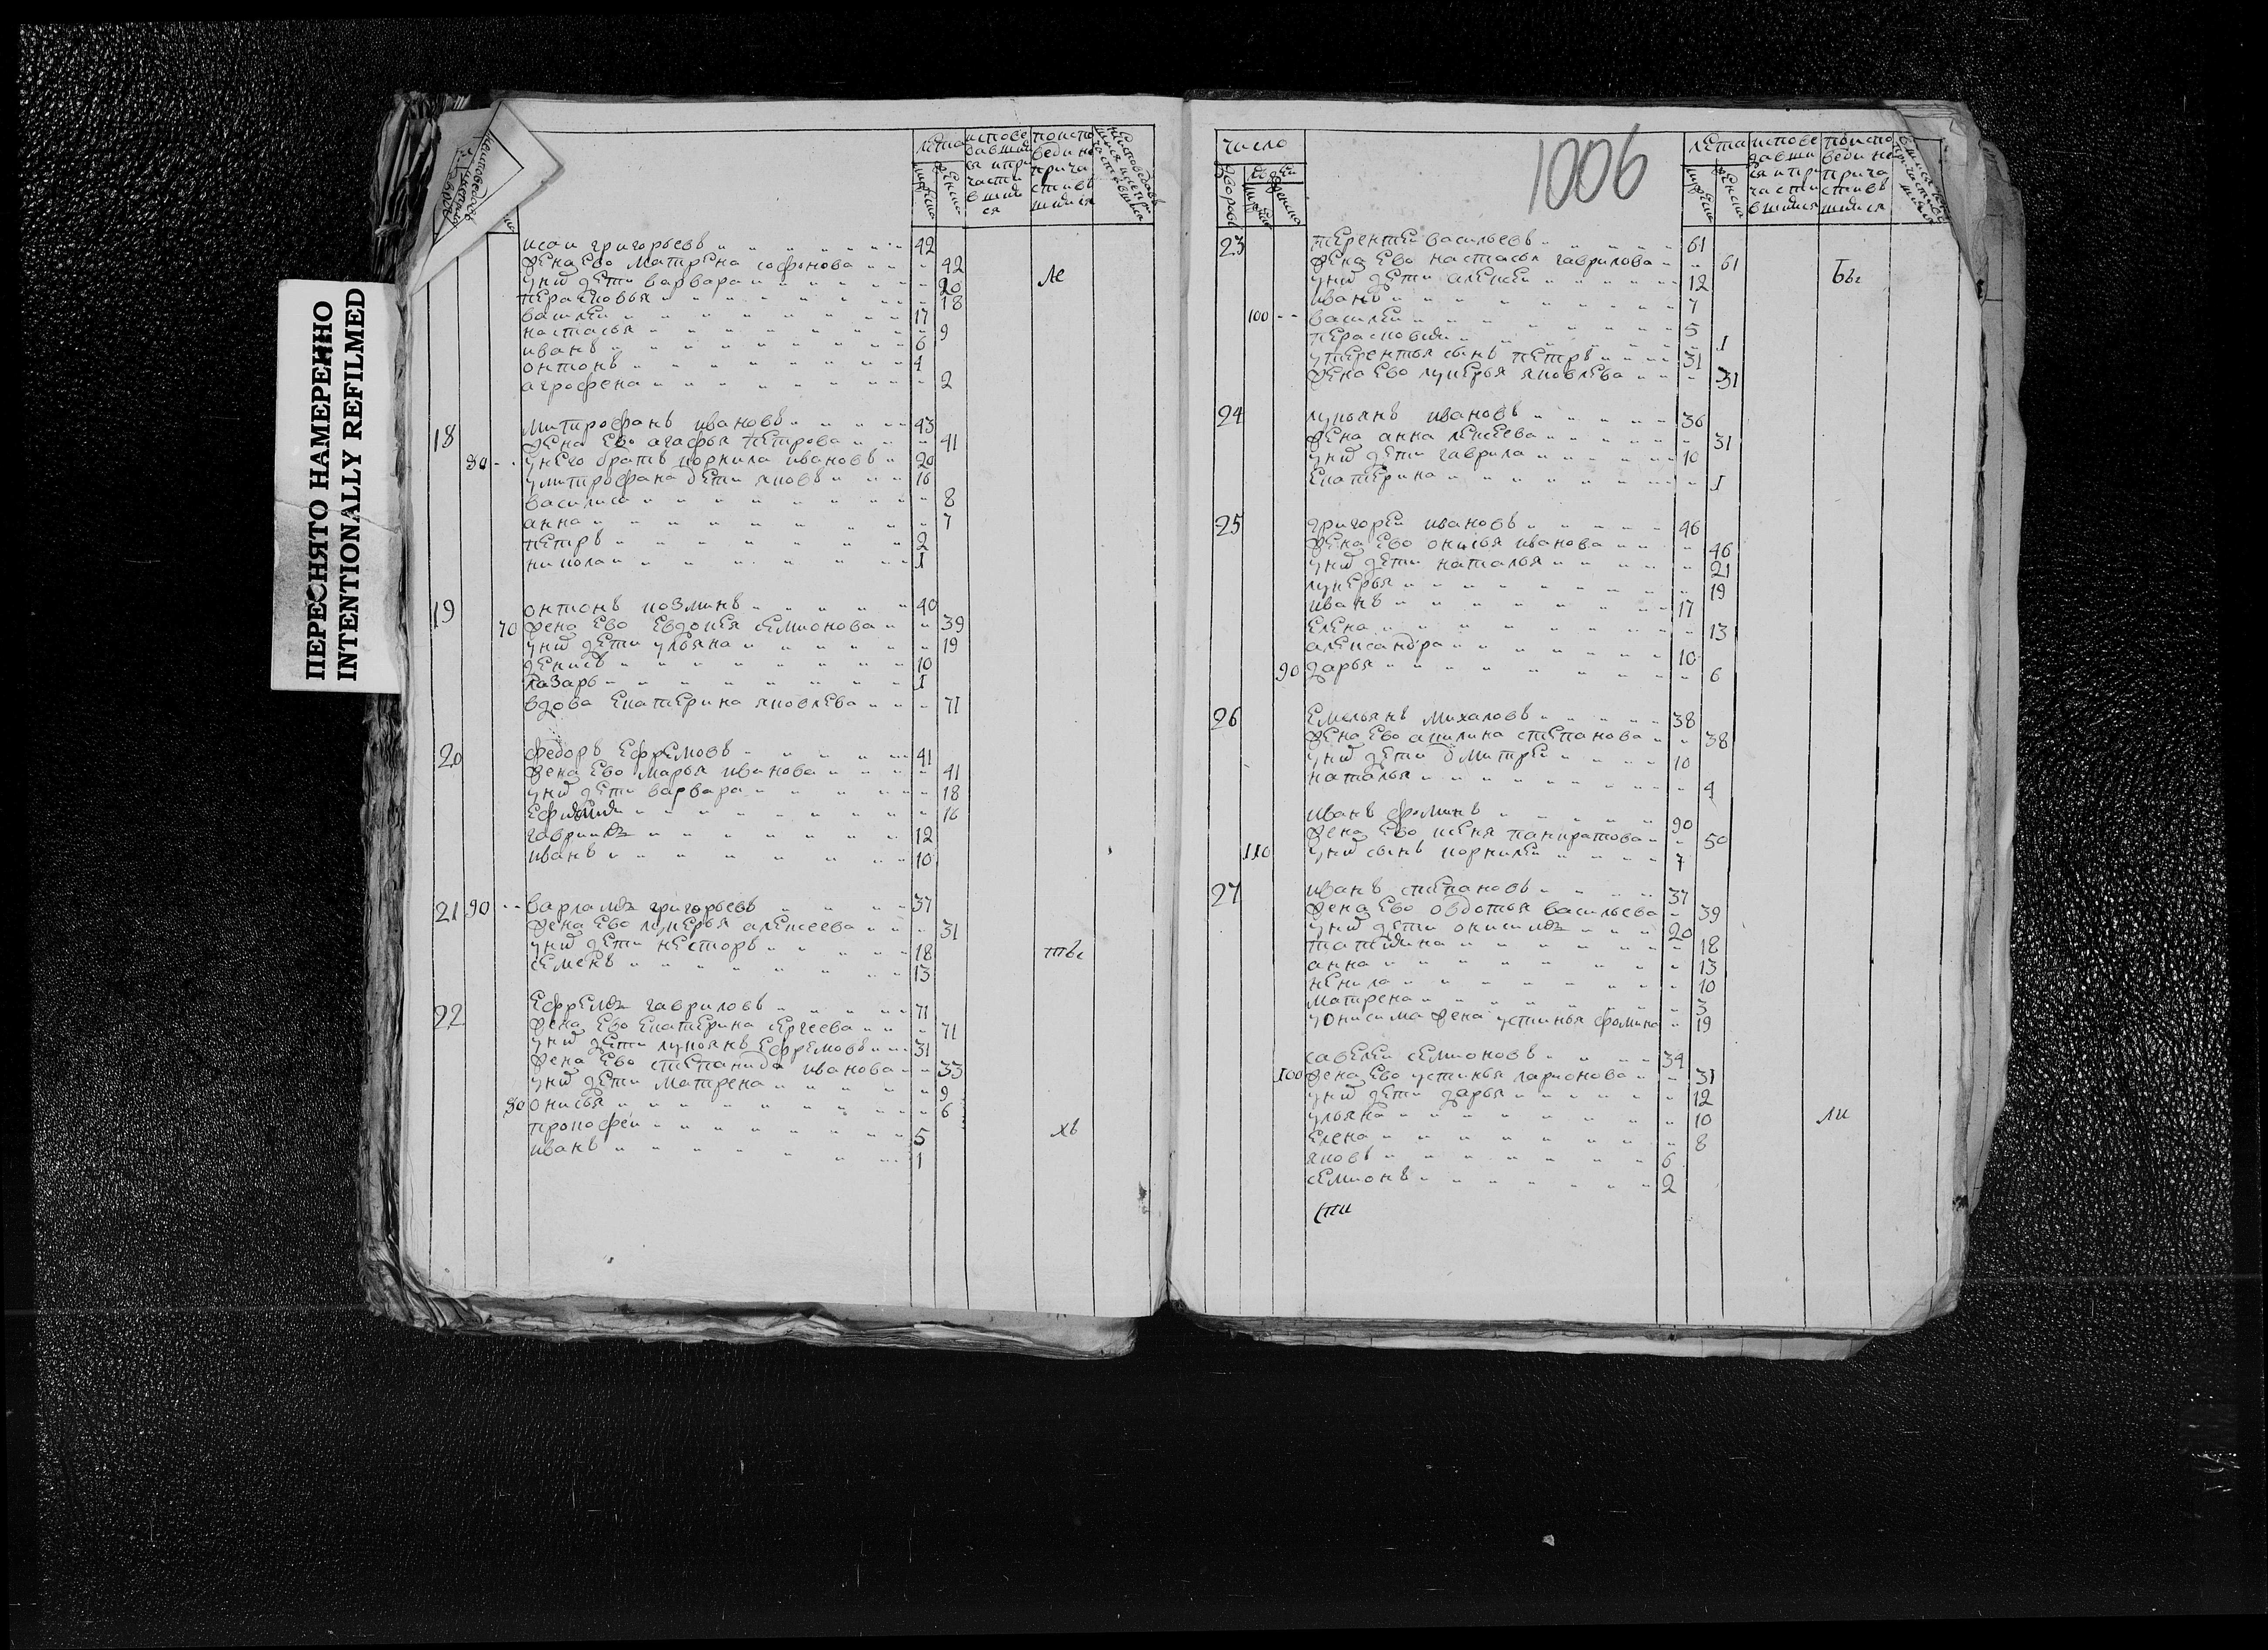 ПЕРЕСНЯТО НАМЕРЕННО
INTENTIONALLY REFILMED
лѣта
исповедавшиися и причастившиися
по исповеди не причастившиися
исаи григорьевъ 42
жена ево матрена софонова 42
у них дети варвара 20
перасковья 18
василеи 17
настасья 9
иванъ 6
онтонъ 4
агрофена 2
ле
18 митрофанъ ивановъ 43
жена ево агафья петрова 41
80 у него братъ корнила ивановъ 20
у митрофана дети яковъ 16
василиса 8
анна 7
петръ 2
никола 1
19 онтонъ козминъ 40
70 жена ево евдокея семионова 39
у них дети ульяна 19
денисъ 10
лазарь 1
вдова екатерина яковлева 71
20 федоръ ефремовъ 41
жена ево марья иванова 41
у них дети варвара 18
16
гаврила 12
иванъ 10
21 90 варламъ григорьевъ 37
жена ево лукерья алексеева 31
у них дети несторъ 18
семенъ 13
22 ефремъ гавриловъ 71
жена ево екатерина сергеева 71
у них дети лукьянъ ефремовъ 31
жена ево степанида иванова 33
у них дети матрена 9
80 онисья 6
прокофеи 5
иванъ 1
хв
1006
число
дворовъ
людеи
мужеска
женска
лѣта
исповедавшиися и причастившиися
по исповеди не причастившиися
23 терентеи васильевъ 61
жена ево настасья гаврилова 61
у них дети алексеи 12
иванъ 7
100 василеи 5
перасковия 1
у терентья сынъ петръ 31
жена ево лукерья яковлева 31
24 лукьянъ ивановъ 36
жена анна лексеева 31
у них дети гаврила 10
екатерина 1
25 григореи ивановъ 46
жена ево онисья иванова 46
у них дети наталья 21
лукерья 19
иванъ 17
елена 13
александра 10
90 дарья 6
26 емельянъ михаловъ 38
жена ево акилина степанова 38
у них дети дмитреи 10
наталья 4
иванъ фоминъ 90
жена ево ксеня панкратова 50
110 у них сынъ корнилеи 7
27 иванъ степановъ 37
жена ево овдотья васильева 39
у них дети онисимъ 20
татияна 18
анна 13
ненила 10
матрена 3
у онисима жена устинья фомина 19
савелеи семионовъ 34
100 жена ево устинья ларионова 31
у них дети дарья 12
ульяна 10
елена 8
яковъ 6
семионъ 2
ли